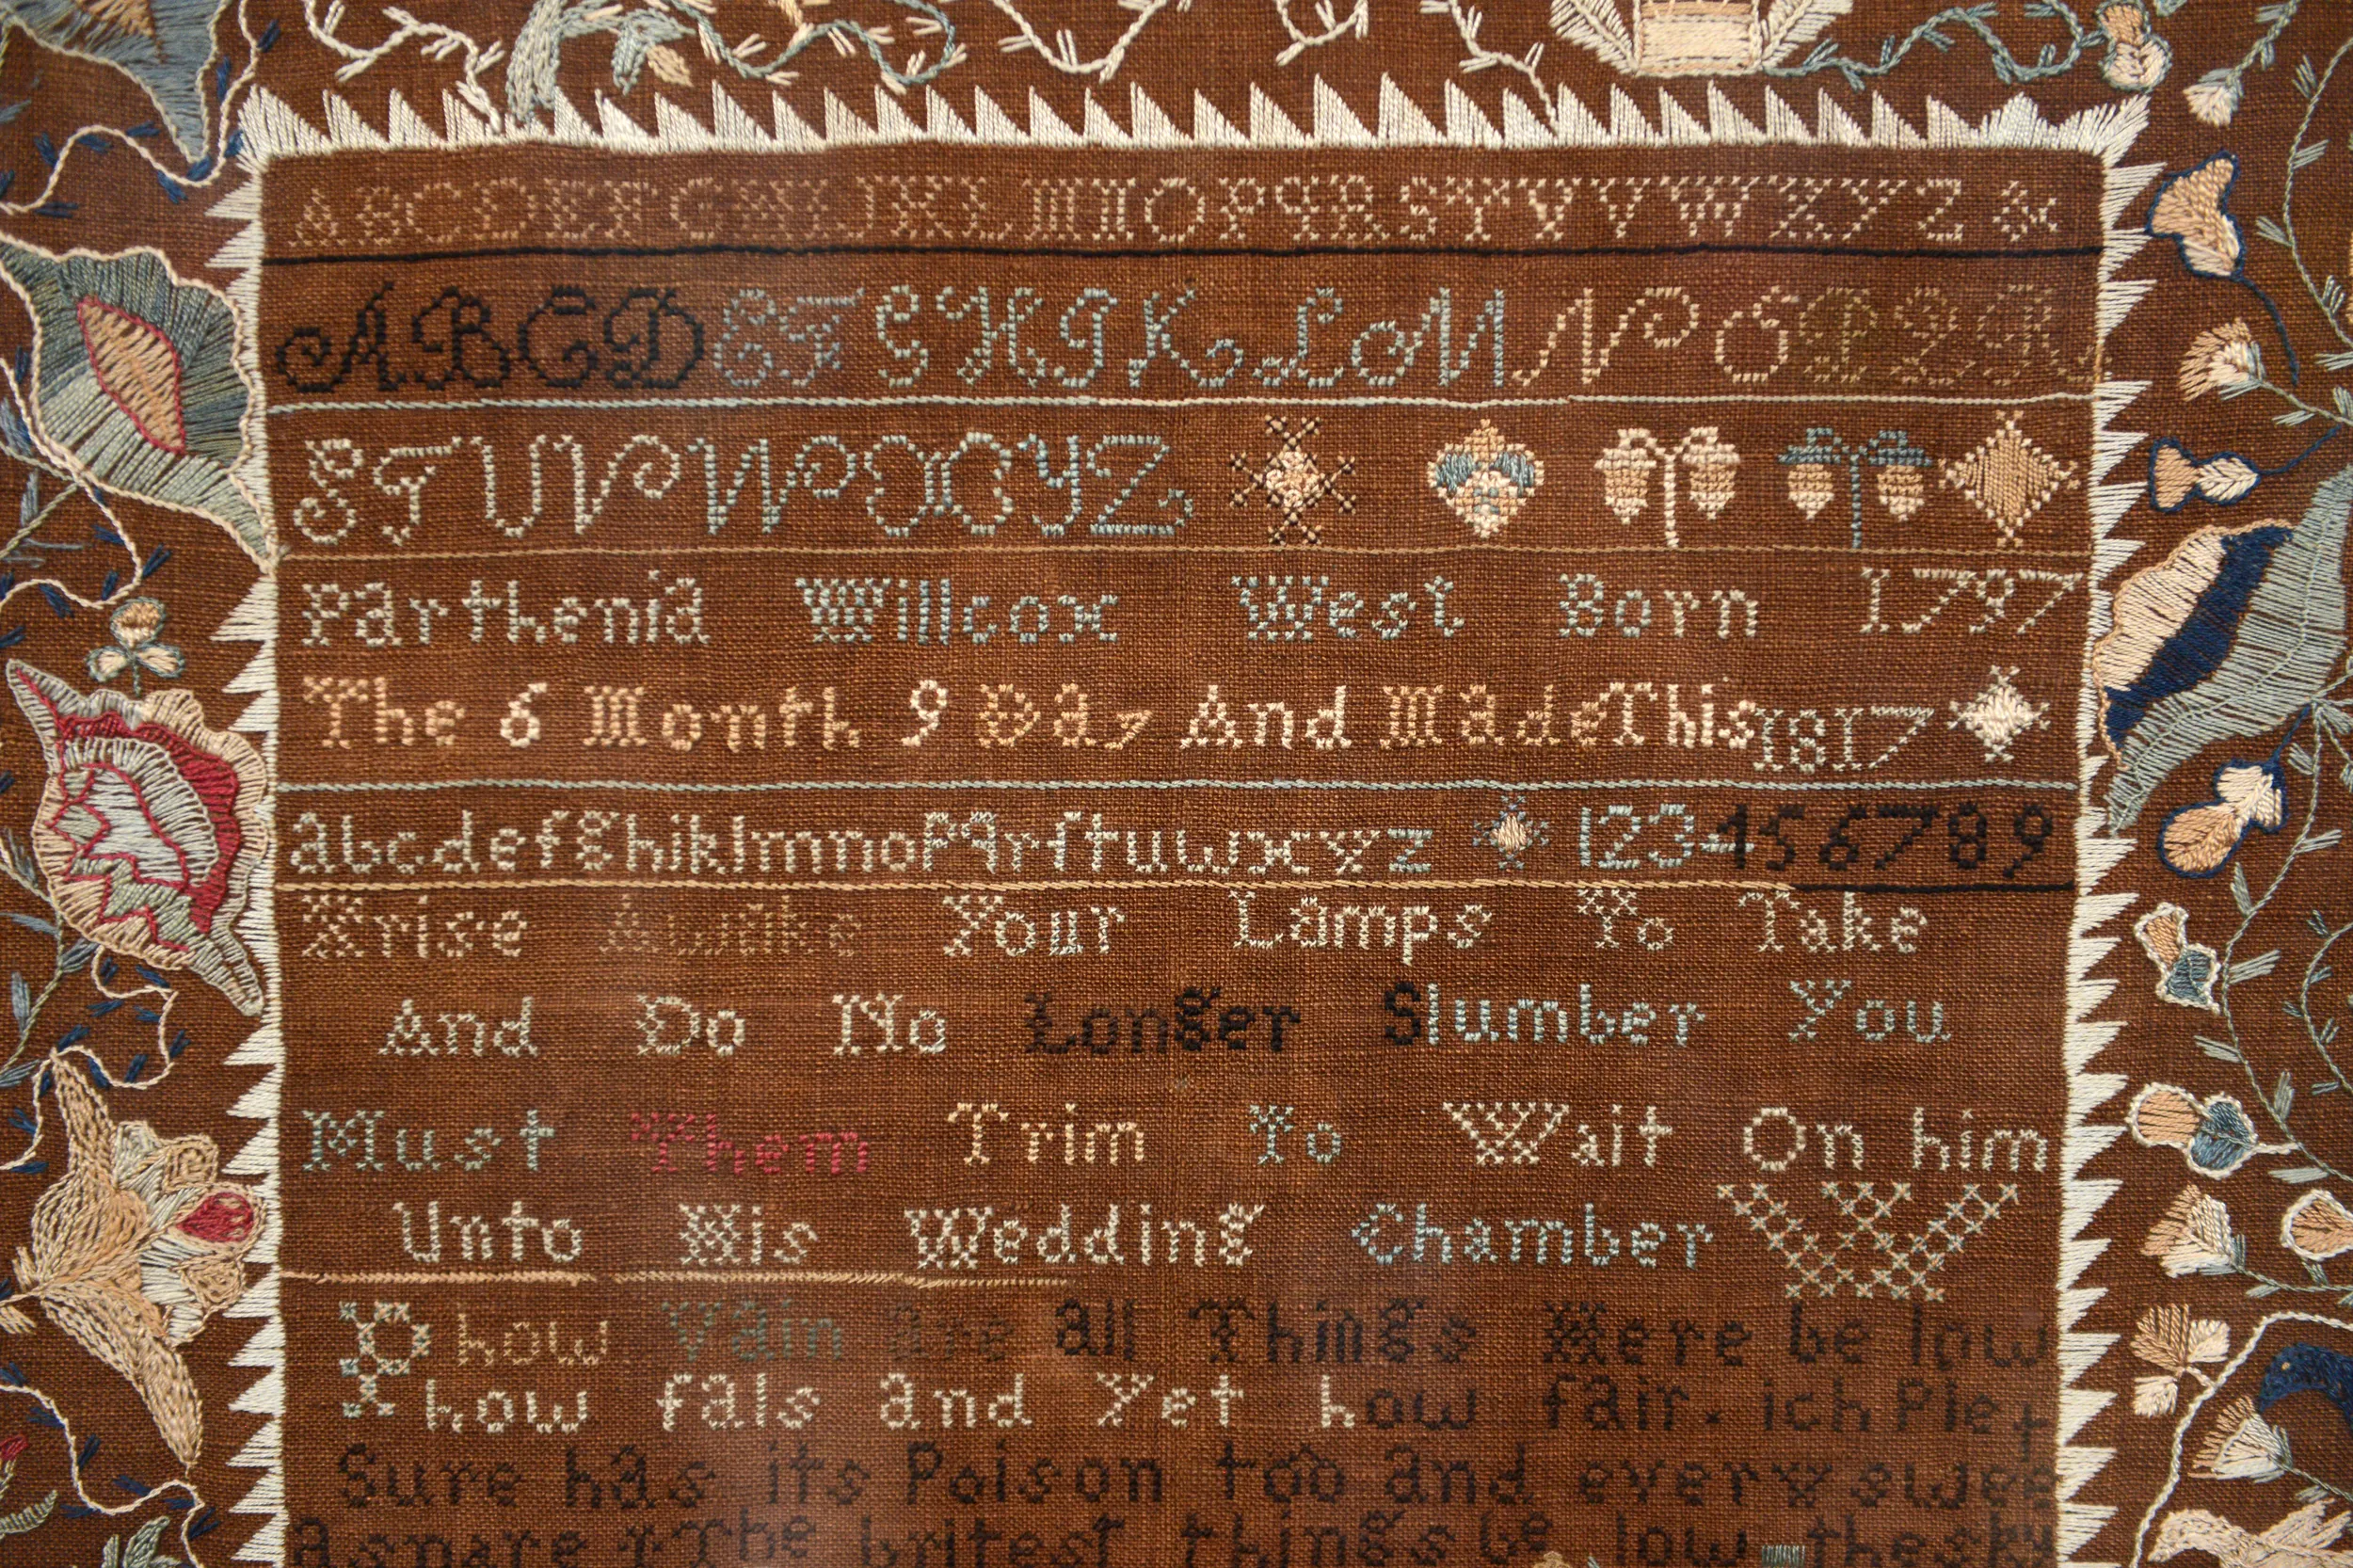 ABCDEFGHIJKLMNOPQRSTUVWXYZ &
ABCDEFGHIKLMNOPQR
STUVWXYZ
Parthenia Willcox West Born 1797
The 6 Month 9 Day And Made This 1817
abcdefghiklmnopqrſtuwxyz 123456789
Arise Awake Your Lamps To Take
And Do No Longer Slumber You
Must Them Trim To Wait On him
Unto His Wedding Chamber
how Vain are all Things Here be low
how fals and Yet how fair. ich Plea
Sure has its Poison too and every swee
A snare The britest things be low the sky